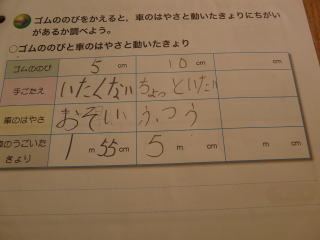 ゴムののびをかえると，車のはやさと動いたきょりにちがい
があるか調べよう。
○ゴムののびと車のはやさと動いたきょり
ゴムののび 5 cm 10 cm cm
手ごたえ いたくない ちょっといたい
車のはやさ おそい ふつう
車のうごいた
きょり 1 m 55 cm 5 m cm m cm